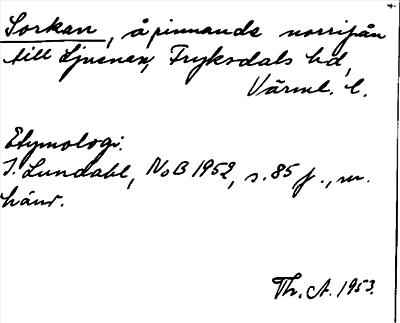 Sorkan, å rinnande norrifrån
till Ljusnan, Fryksdals hd,
Värml. l.
Etymologi.
I. Lundahl, NoB 1952, s. 85 f., m.
hänv.
Th. A. 1953.